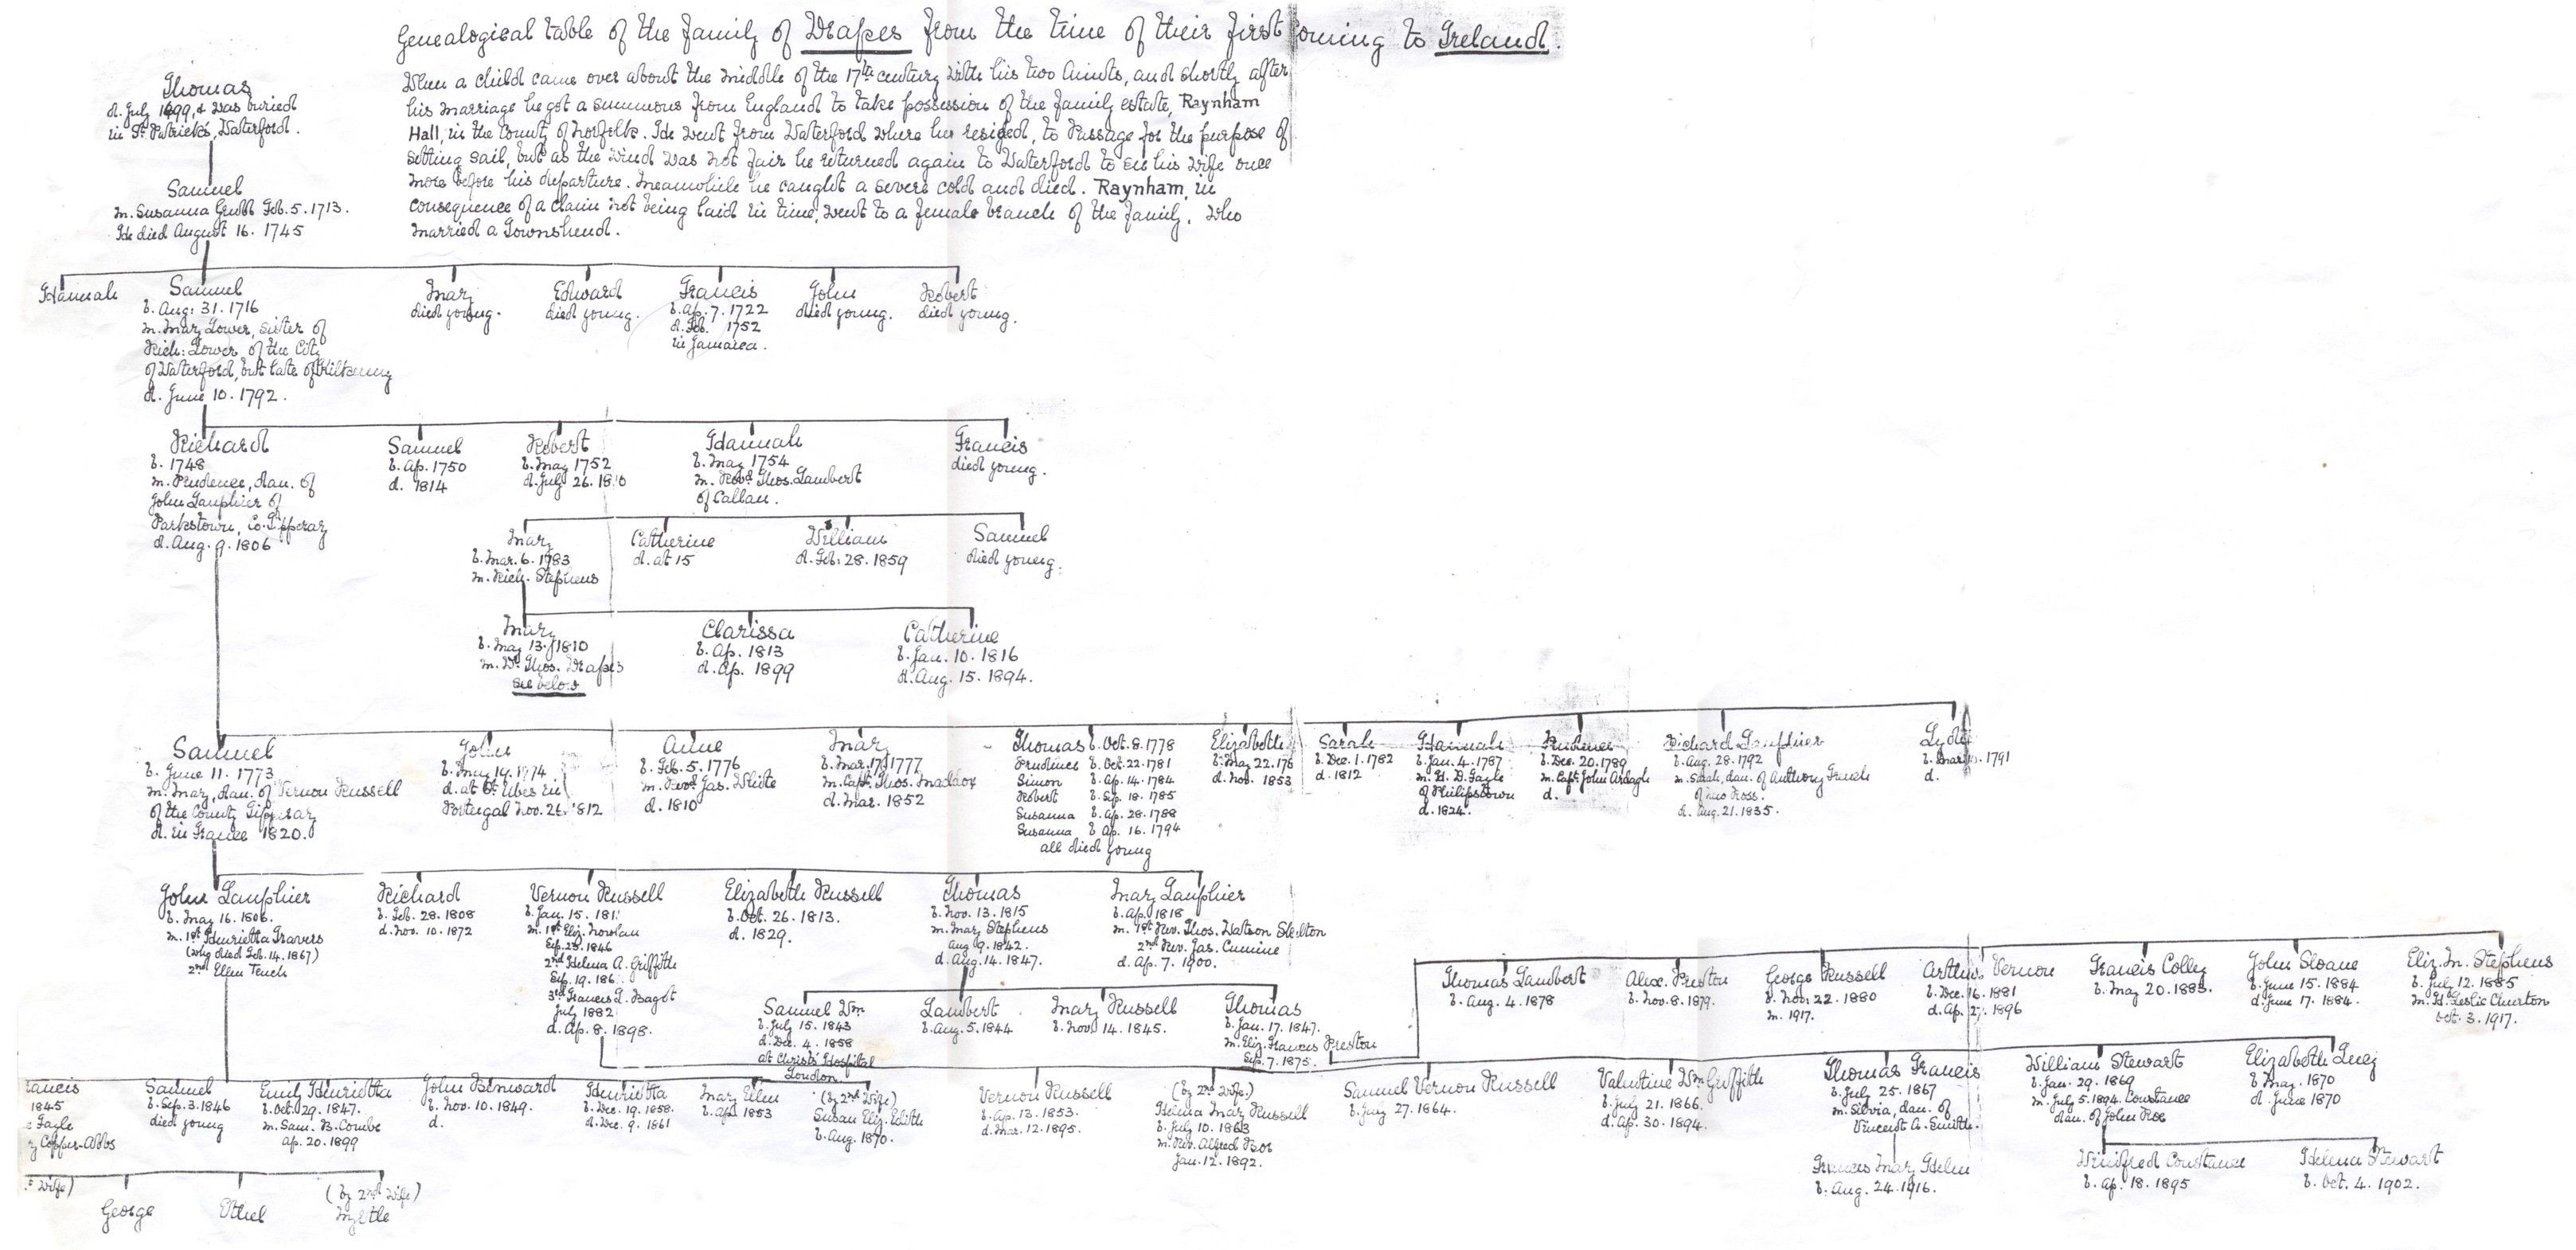 Genealogical table of the family of Drapes from the time of their first coming to Ireland.
Thomas
d. July 1699, & was buried
in St. Patrick's, Waterford.
When a child came over about the middle of the 17th century with his two Aunts, and shortly after
his marriage he got a summons from England to take possession of the family estate, Raynham
Hall, in the County of Norfolk. He went from Waterford where he resided, to Passage for the purpose of
setting sail, but as the wind was not fair he returned again to Waterford to see his wife once
more before his departure. Meanwhile he caught a severe cold and died. Raynham, in
consequence of a claim not being laid in time, went to a female branch of the family, who
married a Townshend.
Samuel
m. Susanna Grubb Feb. 5. 1713.
He died August 16. 1745
Hannah
Samuel
b. Aug: 31. 1716
m. Mary Lower, sister of
Rich: Lower of the City
of Waterford, but late of Kilkenny
d. June 10. 1792.
Mary
died young.
Edward
died young.
Francis
b. Ap. 7. 1722
d. Feb. 1752
in Jamaica.
John
died young.
Robert
died young.
Richard
b. 1748
m. Prudence, dau. of
John Lanphier of
Parkstown, Co. Tipperary
d. Aug. 9. 1806
Samuel
b. Ap. 1750
d. 1814
Robert
b. May 1752
d. July 26. 1810
Hannah
b. May 1754
m. Revd. Thos. Lambert
of Callan.
Francis
died young.
Mary
b. Mar. 6. 1783
m. Rich. Stephens
Catherine
d. at 15
William
d. Feb: 28. 1859
Samuel
died young.
Mary
b. May 13. 1810
m. Dr. Thos. Drapes
see below
Clarissa
b. Ap. 1813
d. Ap. 1899
Catherine
b. Jan. 10. 1816
d. Aug. 15. 1894.
Samuel
b. June 11. 1773
m. Mary, dau. of Vernon Russell
of the County Tipperary
d. in France 1820.
John
b. May 14. 1774
d. at St. Ubes in
Portugal Nov. 26. 1812
Anne
b. Feb. 5. 1776
m. Revd. Jas. White
d. 1810
Mary
b. Mar. 17. 1777
m. Capt. Thos. Maddox
d. Mar. 1852
Thomas b. Oct. 8. 1778
Prudence b. Oct. 22. 1781
Simon b. Ap. 14. 1784
Robert b. Sep. 18. 1785
Susanna b. Ap. 28. 1788
Susanna b. Ap. 16. 1794
all died young
Elizabeth
b. May 22. 176
d. Nov. 1853
Sarah
b. Dec. 1. 1782
d. 1812
Hannah
b. Jan. 4. 1787
m. H. D. Fayle
of Philipstown
d. 1824.
Prudence
b. Dec. 20. 1789
m. Capt. John Ardagh
d.
Richard Lanphier
b. Aug. 28. 1792
m. Sarah, dau. of Anthony French
of New Ross.
d. Aug. 21. 1835.
Lydia
b. Mar. 1791
d.
John Lanphier
b. May 16. 1806.
m. 1st Henrietta Travers
(who died Feb. 14. 1867)
2nd Ellen Tench
Richard
b. Feb. 28. 1808
d. Nov. 10. 1872
Vernon Russell
b. Jan. 15. 181
m. 1st Eliz. Nowlan
Sep. 23. 1846
2nd Helena A. Griffith
Sep. 19. 186
3rd Frances L. Bagot
July 1882
d. Ap. 8. 1898.
Elizabeth Russell
b. Oct. 26. 1813.
d. 1829.
Thomas
b. Nov. 13. 1815
m. Mary Stephens
Aug. 9. 1842.
d. Aug. 14. 1847.
Mary Lanphier
b. Ap. 1818
m. 1st Rev. Thos. Watson Skelton
2nd Rev. Jas. Cumine
d. Ap. 7. 1900.
Samuel Wm
b. July 15. 1843
d. Dec. 4. 1858
at Christ's Hospital
London.
Lambert
b. Aug. 5. 1844
Mary Russell
b. Nov. 14. 1845.
Thomas
b. Jan. 17. 1847.
m. Eliz. Frances Preston
Sep. 7. 1875.
Thomas Lambert
b. Aug. 4. 1878
Alex. Preston
b. Nov. 8. 1879.
George Russell
b. Nov: 22. 1880
m. 1917.
Arthur Vernon
b. Dec. 16. 1881
d. Ap. 27. 1896
Francis Colley
b. May 20. 1883.
John Sloane
b. June 15. 1884
d. June 17. 1884.
Eliz. M. Stephens
b. July 12. 1885
m. H. Leslie Cheerton
Oct. 3. 1917.
rancis
1845
e Fayle
y Copper-Abbs
Samuel
b. Sep. 3. 1846
died young
Emily Henrietta
b. Oct. 29. 1847.
m. Sam. B. Combe
Ap. 20. 1899
John Kenward
b. Nov. 10. 1849.
d.
Henrietta
b. Dec. 19. 1858.
d. Dec. 9. 1861
Mary Ellen
b. Ap. 1853
(by 2nd Wife)
Susan Eliz. Edith
b. Aug. 1870.
Vernon Russell
b. Ap. 13. 1853.
d. Mar. 12. 1895.
(by 2nd Wife.)
Helena Mary Russell
b. July 10. 1863
m. Rev. Alfred Bor
Jan. 12. 1892.
Samuel Vernon Russell
b. May 27. 1864.
Valentine Wm Griffith
b. July 21. 1866.
d. Ap. 30. 1894.
Thomas Francis
b. July 25. 1867
m. Silvia, dau. of
Vincent A. Smith.
William Stewart
b. Jan. 29. 1869
m. July 5. 1894. Constance
dau. of John Roe
Elizabeth Lucy
b. May. 1870
d. June 1870
Frances Mary Helen
b. Aug. 24. 1916.
Winifred Constance
b. Ap. 18. 1895
Helena Stewart
b. Oct. 4. 1902.
Wife)
George
Ethel
(by 2nd Wife)
Myrtle